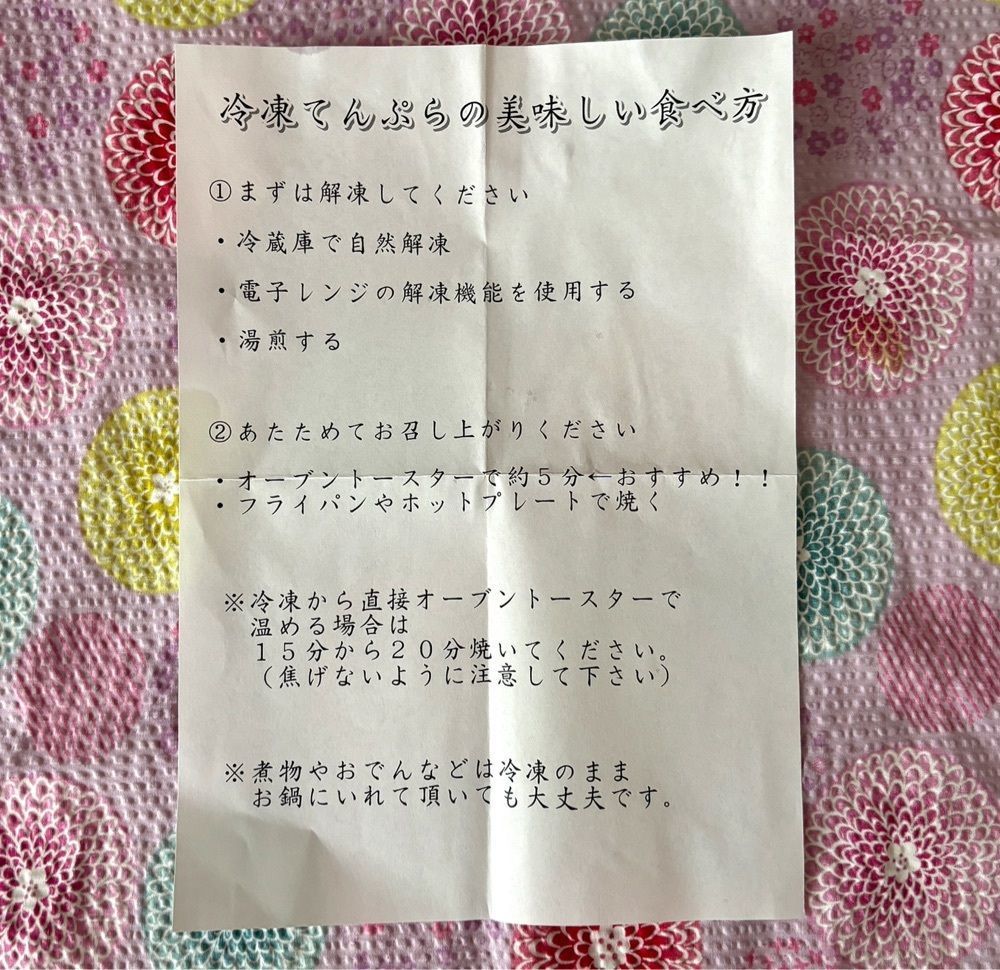 冷凍てんぷらの美味しい食べ方
①まずは解凍してください
・冷蔵庫で自然解凍
・電子レンジの解凍機能を使用する
・湯煎する
②あたためてお召し上がりください
・オーブントースターで約５分←おすすめ！！
・フライパンやホットプレートで焼く
※冷凍から直接オーブントースターで
温める場合は
１５分から２０分焼いてください。
（焦げないように注意して下さい）
※煮物やおでんなどは冷凍のまま
お鍋にいれて頂いても大丈夫です。